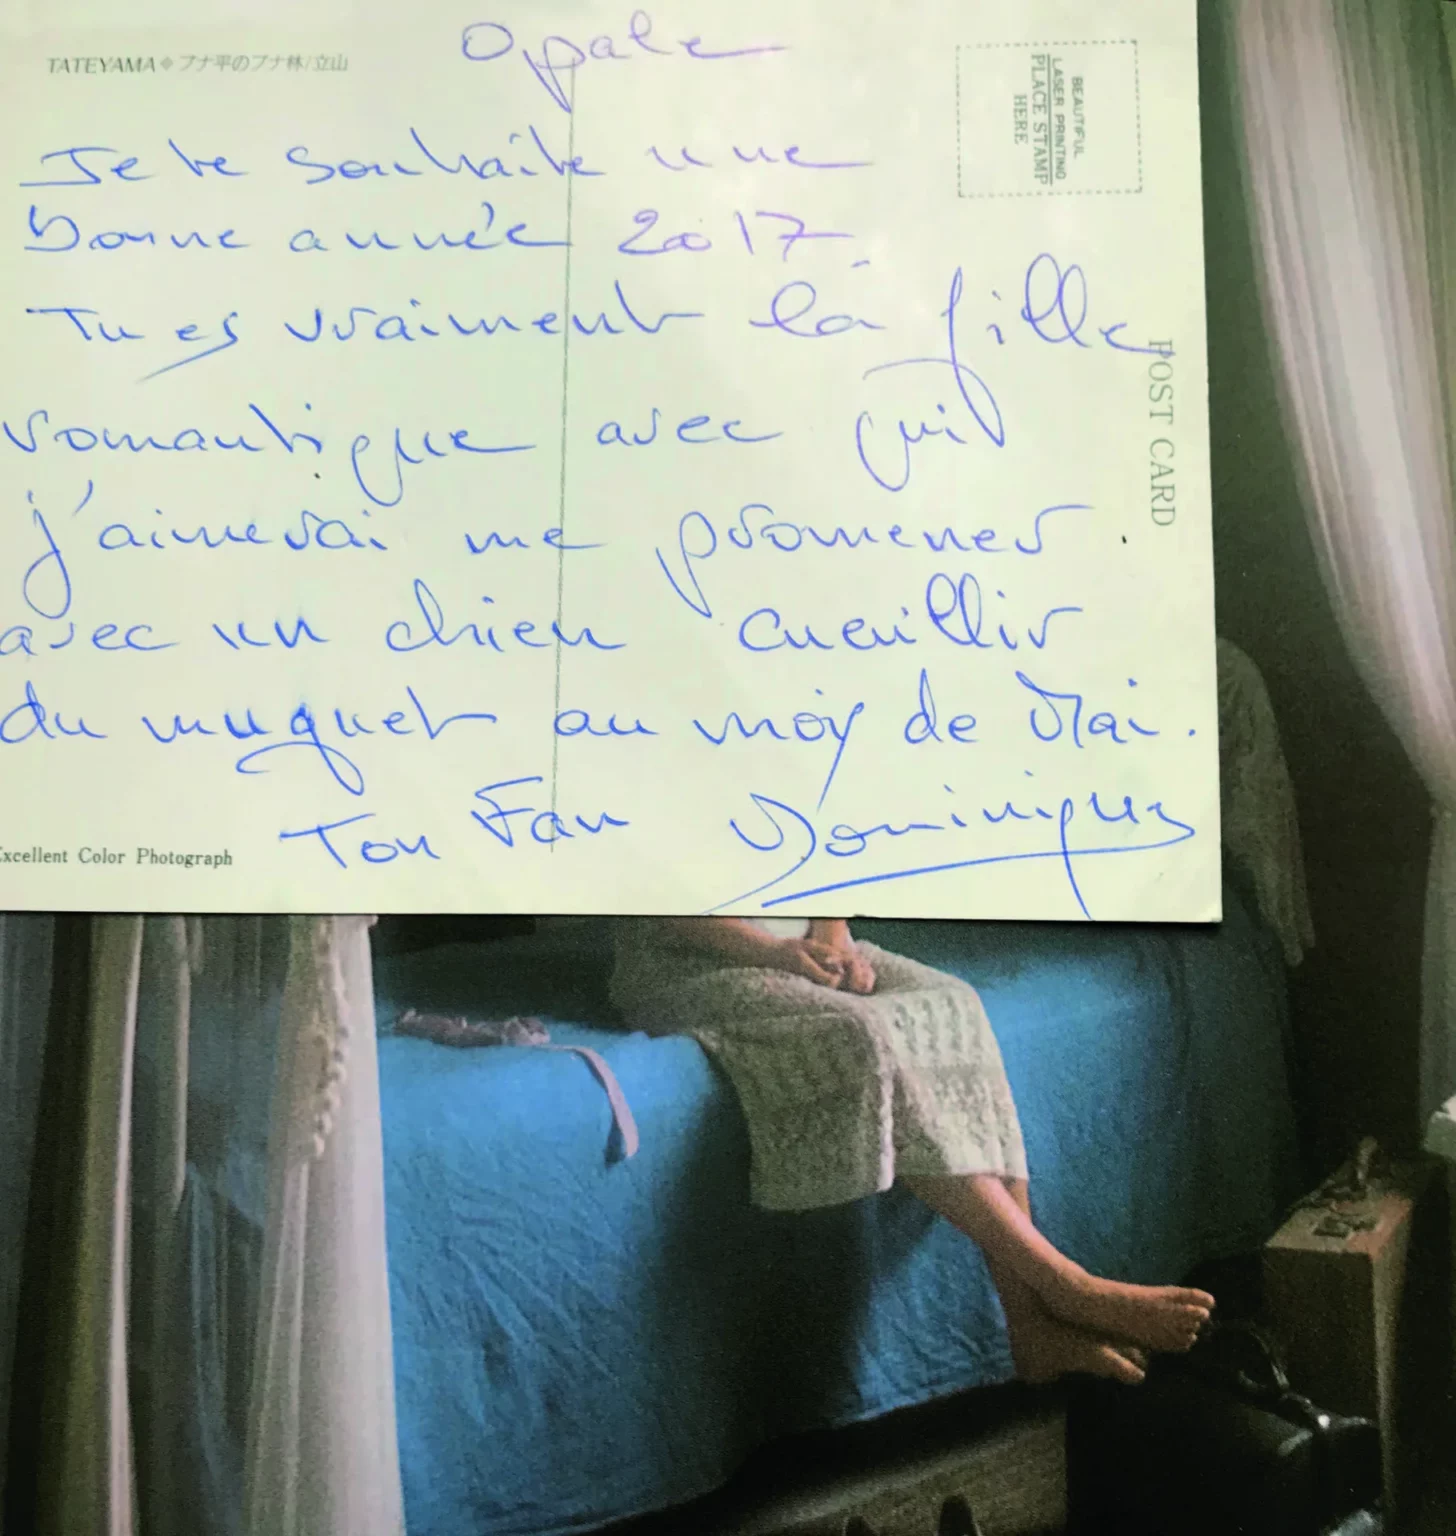 TATEYAMA◆ブナ平のブナ林/立山
Opale
BEAUTIFUL
LASER PRINTING
PLACE STAMP
HERE
Je te souhaite une
bonne année 2017.
Tu es vraiment la fille
romantique avec qui
j'aimerai me promener
avec un chien cueillir
du muguet au moy de Mai.
Ton Fan Dominique
POST CARD
Excellent Color Photograph